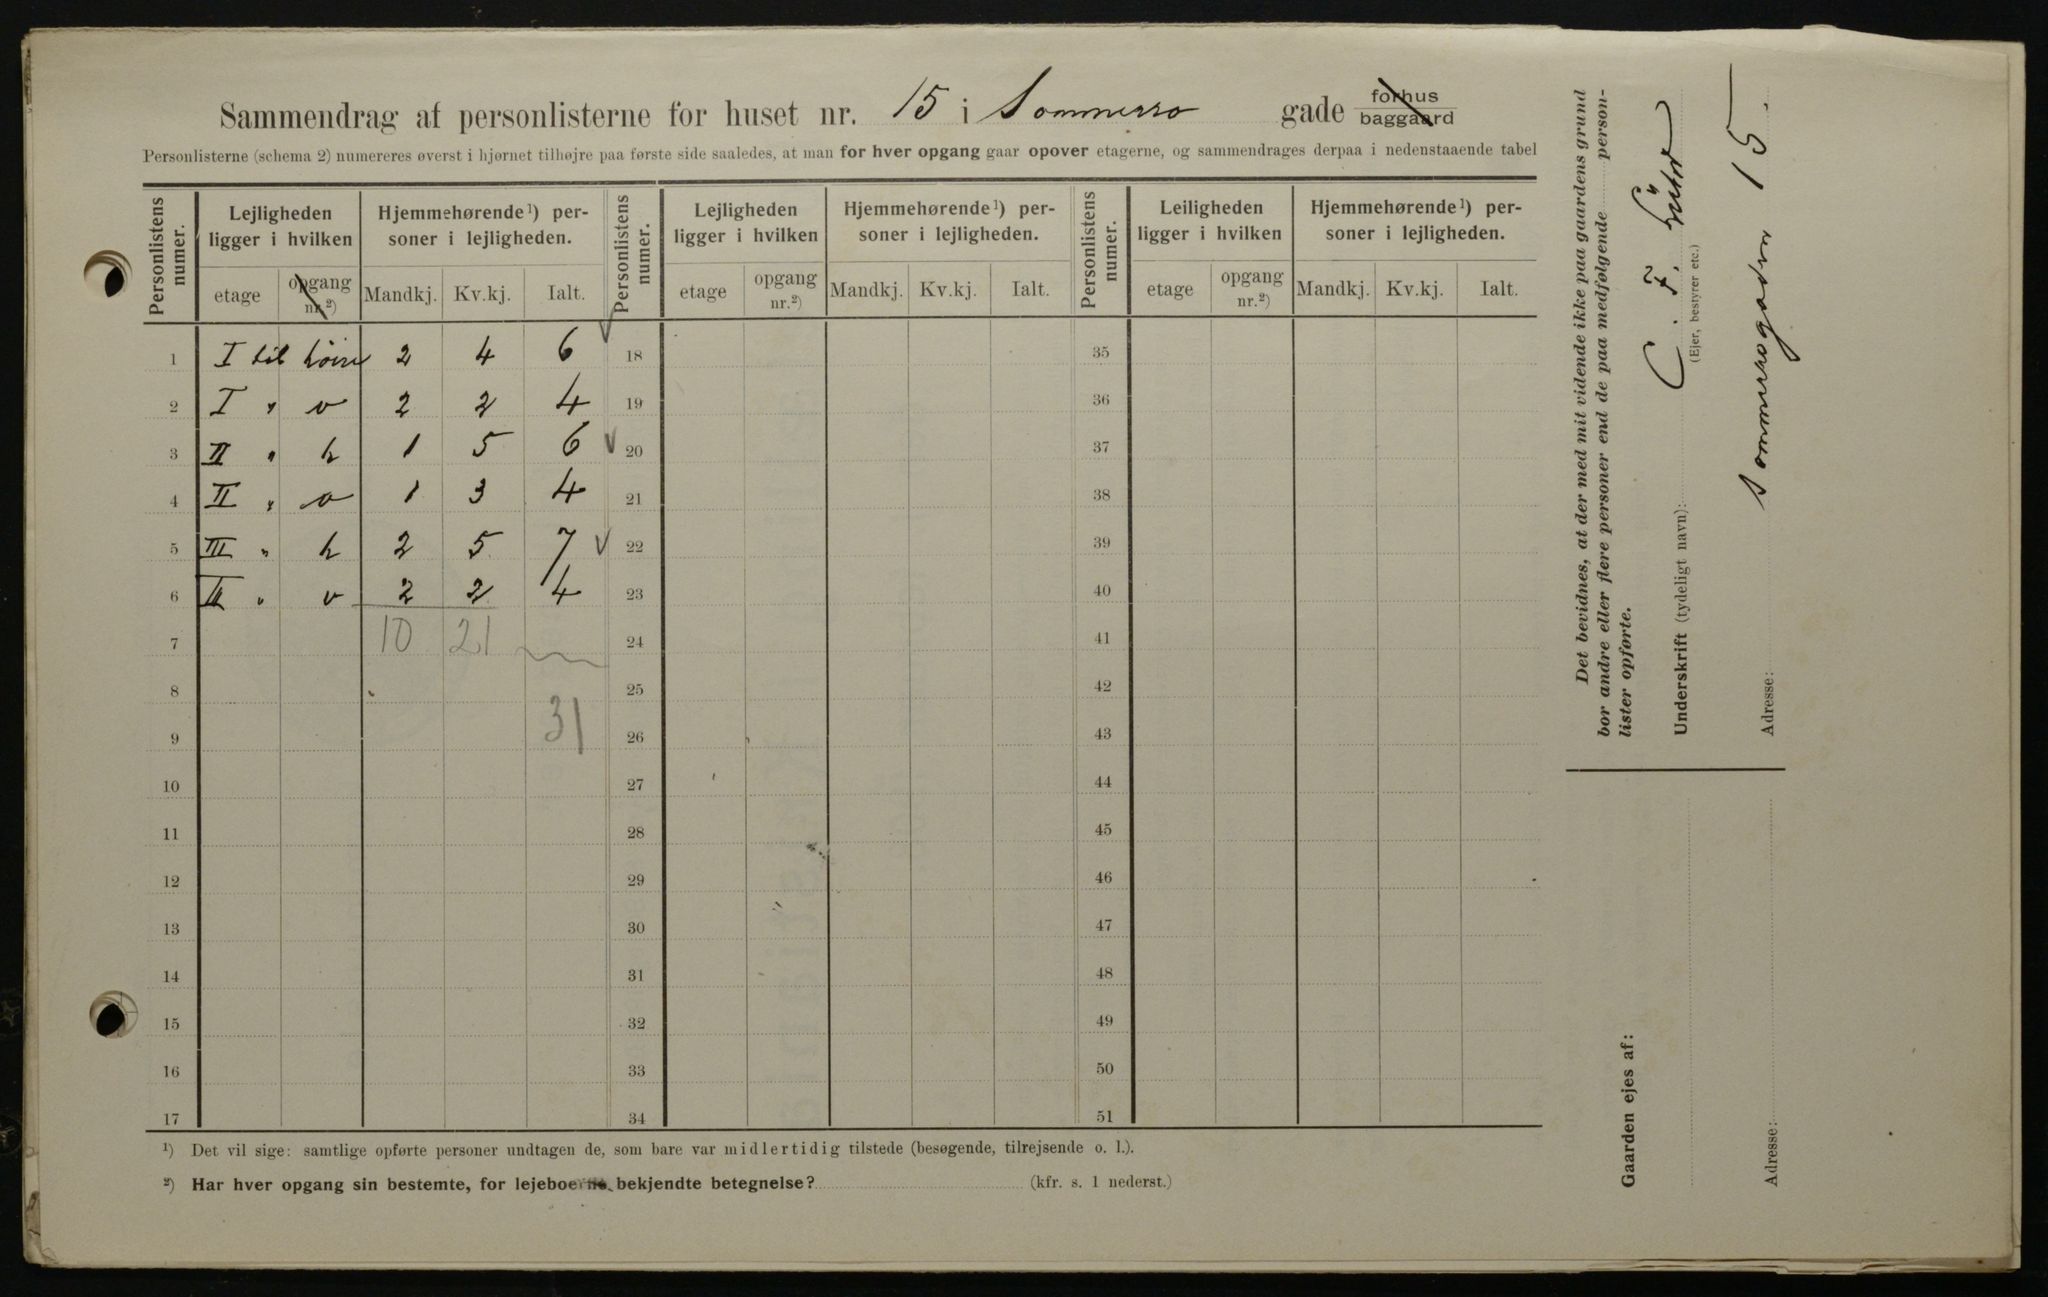 Sammendrag af personlisterne for huset nr. 15 i Sommerro gade forhus baggaard
Personlisterne (schema 2) numereres øverst i hjørnet tilhøjre paa første side saaledes, at man for hver opgang gaar opover etagerne, og sammendrages derpaa i nedenstaaende tabel
Personlistens numer. Lejligheden ligger i hvilken Hjemmehørende¹) personer i lejligheden. Personlistens numer. Lejligheden ligger i hvilken Hjemmehørende¹) personer i lejligheden. Personlistens numer. Leiligheden ligger i hvilken Hjemmehørende¹) personer i lejligheden.
etage opgang nr.²) Mandkj. Kv.kj. Ialt. etage opgang nr.²) Mandkj. Kv.kj. Ialt. etage opgang nr.²) Mandkj. Kv.kj. Ialt.
1 I til høire 2 4 6 18 35
2 I " v 2 2 4 19 36
3 II " h 1 5 6 20 37
4 II " v 1 3 4 21 38
5 III " h 2 5 7 22 39
6 III " v 2 2 4 23 40
7 10 21 24 41
8 25 42
9 31 26 43
10 27 44
11 28 45
12 29 46
13 30 47
14 31 48
15 32 49
16 33 50
17 34 51
¹) Det vil sige: samtlige opførte personer undtagen de, som bare var midlertidig tilstede (besøgende, tilrejsende o. l.).
²) Har hver opgang sin bestemte, for lejeboerne bekjendte betegnelse? (kfr. s. 1 nederst.)
Det bevidnes, at der med mit vidende ikke paa gaardens grund
bor andre eller flere personer end de paa medfølgende personlister opførte.
Underskrift (tydeligt navn): C. F.
(Ejer, bestyrer etc.)
Adresse: Sommerrogaden 15.
Gaarden ejes af:
Adresse: